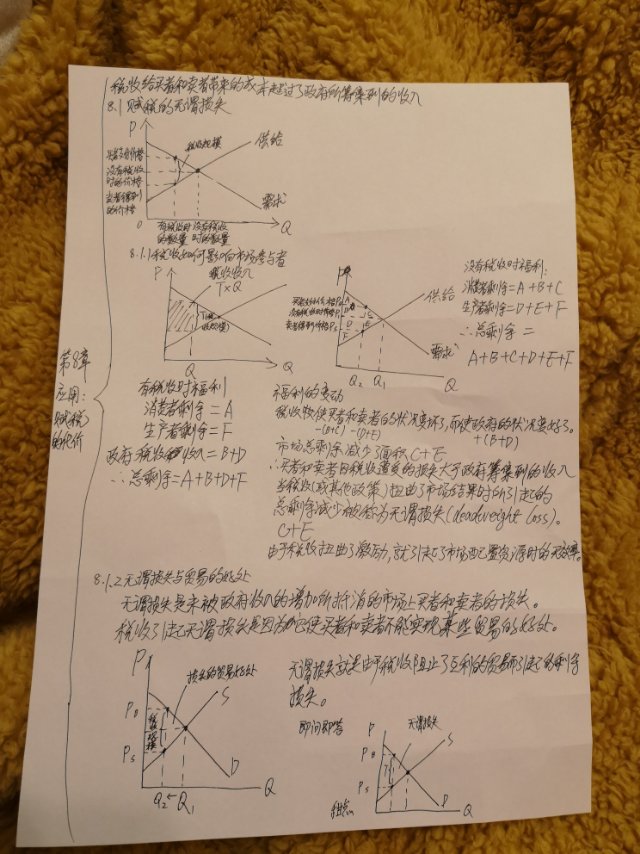 税收给买者和卖者带来的成本超过了政府所筹集到的收入
8.1 赋税的无谓损失
P
供给
税收规模
买者支付价格
没有税收
时的价格
卖者得到
的价格
需求
0
Q
有税收时 没有税收
的数量 时的数量
8.1.1 税收如何影响市场参与者
P
税收收入
T×Q
Q
P
供给
需求
Q2 Q1
Q
没有税收时福利:
消费者剩余=A+B+C
生产者剩余=D+E+F
∴总剩余=
A+B+C+D+E+F
第8章
应用:
赋税
的代价
有税收时福利
消费者剩余=A
生产者剩余=F
政府税收收入=B+D
∴总剩余=A+B+D+F
福利的变动
税收使买者和卖者的状况变坏了,而使政府的状况变好了。
-(B+C) -(D+E) +(B+D)
市场总剩余减少了面积C+E
∴买者和卖者因税收遭受的损失大于政府筹集到的收入
当税收(或其他政策)扭曲了市场结果时所引起的
总剩余减少被称为无谓损失(deadweight loss)。
C+E
由于税收扭曲了激励,就引起了市场配置资源时的无效率。
8.1.2 无谓损失与贸易的好处
无谓损失是未被政府收入的增加所抵消的市场上买者和卖者的损失。
税收引起无谓损失是因为它使买者和卖者不能实现某些贸易的好处。
P
损失的贸易好处
S
PB
税收
规模
PS
D
Q2←Q1
Q
无谓损失就是由于税收阻止了互利的贸易而引起的剩余
损失。
即问即答
P
无谓损失
S
PB
T
PS
D
Q